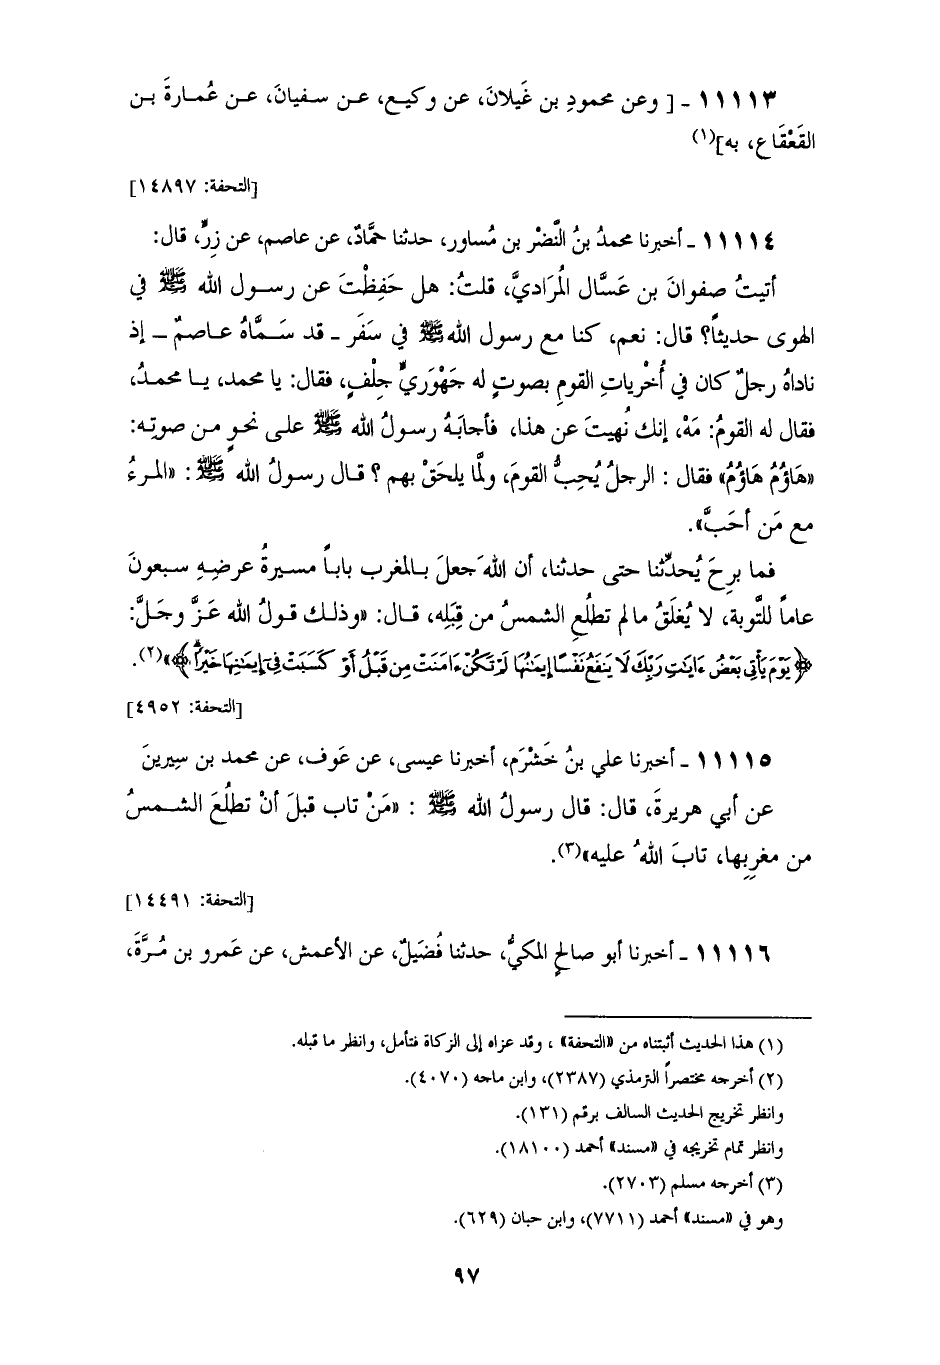 ١١١١٣ ـ [ وعن محمودِ بن غَيلانَ، عن وكيـع، عـن سـفيانَ، عـن عُمـارةَ بـن
القَعْقَاع، به](١)
[التحفة: ١٤٨٩٧]
١١١١٤ ـ أخبرنا محمدُ بنُ النَّضْر بن مُساور، حدثنا حمَّادٌ، عن عاصم، عن زِرٍّ، قال:
أتيتُ صفوانَ بن عَسَّال المُرَاديَّ، قلتُ: هل حَفِظْتَ عن رسـول الله ﷺ في
الهوى حديثاً؟ قال: نعم، كنا مع رسول الله ﷺ في سَفَر ـ قد سَـمَّاهُ عـاصمٌ ـ إذ
ناداهُ رجلٌ كان في أُخْرياتِ القومِ بصوتٍ له جَهْوَريٍّ جِلْفٍ، فقال: يا محمد، يـا محمـدُ،
فقال له القومُ: مَهْ، إنك نُهيتَ عن هذا، فأجابَـهُ رسـولُ الله ﷺ علـى نحـوٍ مـن صوتِـه:
«هَاؤُمُ هَاؤُمُ» فقال : الرجلُ يُحِبُّ القومَ، ولَمَّا يلحَقْ بهم ؟ قـال رسـولُ الله ﷺ : «المـرءُ
مع مَن أحَبَّ».
فما برِحَ يُحدِّثنا حتى حدثنا، أن اللهَ جعلَ بـالمغرب بابـاً مسـيرةُ عرضِـهِ سـبعونَ
عاماً للتَّوبة، لا يُغلَقُ ما لم تطلُعِ الشمسُ من قِبَلِه، قـال: «وذلـك قـولُ الله عَـزَّ وجَـلَّ:
﴿يَوْمَ يَأْتِى بَعْضُ ءَايَتِ رَبِّكَ لَا يَنفَعُ نَفْسًا إِيمَنُهَا لَمْ تَكُنْ ءَامَنَتْ مِن قَبْلُ أَوْ كَسَبَتْ فِى إِيمَنِهَا خَيْراً﴾»(٢).
[التحفة: ٤٩٥٢]
١١١١٥ ـ أخبرنا علي بنُ خَشْرَم، أخبرنا عيسى، عن عَوف، عن محمد بن سِيرينَ
عن أبي هريرةَ، قال: قال رسولُ الله ﷺ : «مَنْ تاب قبلَ أنْ تطلُعَ الشـمسُ
من مغرِبِها، تابَ اللهُ عليه»(٣).
[التحفة: ١٤٤٩١]
١١١١٦ ـ أخبرنا أبو صالحٍ المكيُّ، حدثنا فُضَيلٌ، عن الأعمش، عن عَمرو بن مُـرَّةَ،
(١) هذا الحديث أثبتناه من «التحفة» ، وقد عزاه إلى الزكاة فتأمل، وانظر ما قبله.
(٢) أخرجه مختصراً الترمذي (٢٣٨٧)، وابن ماجه (٤٠٧٠).
وانظر تخريج الحديث السالف برقم (١٣١).
وانظر تمام تخريجه في «مسند» أحمد (١٨١٠٠).
(٣) أخرجه مسلم (٢٧٠٣).
وهو في «مسند» أحمد (٧٧١١)، وابن حبان (٦٢٩).
٩٧